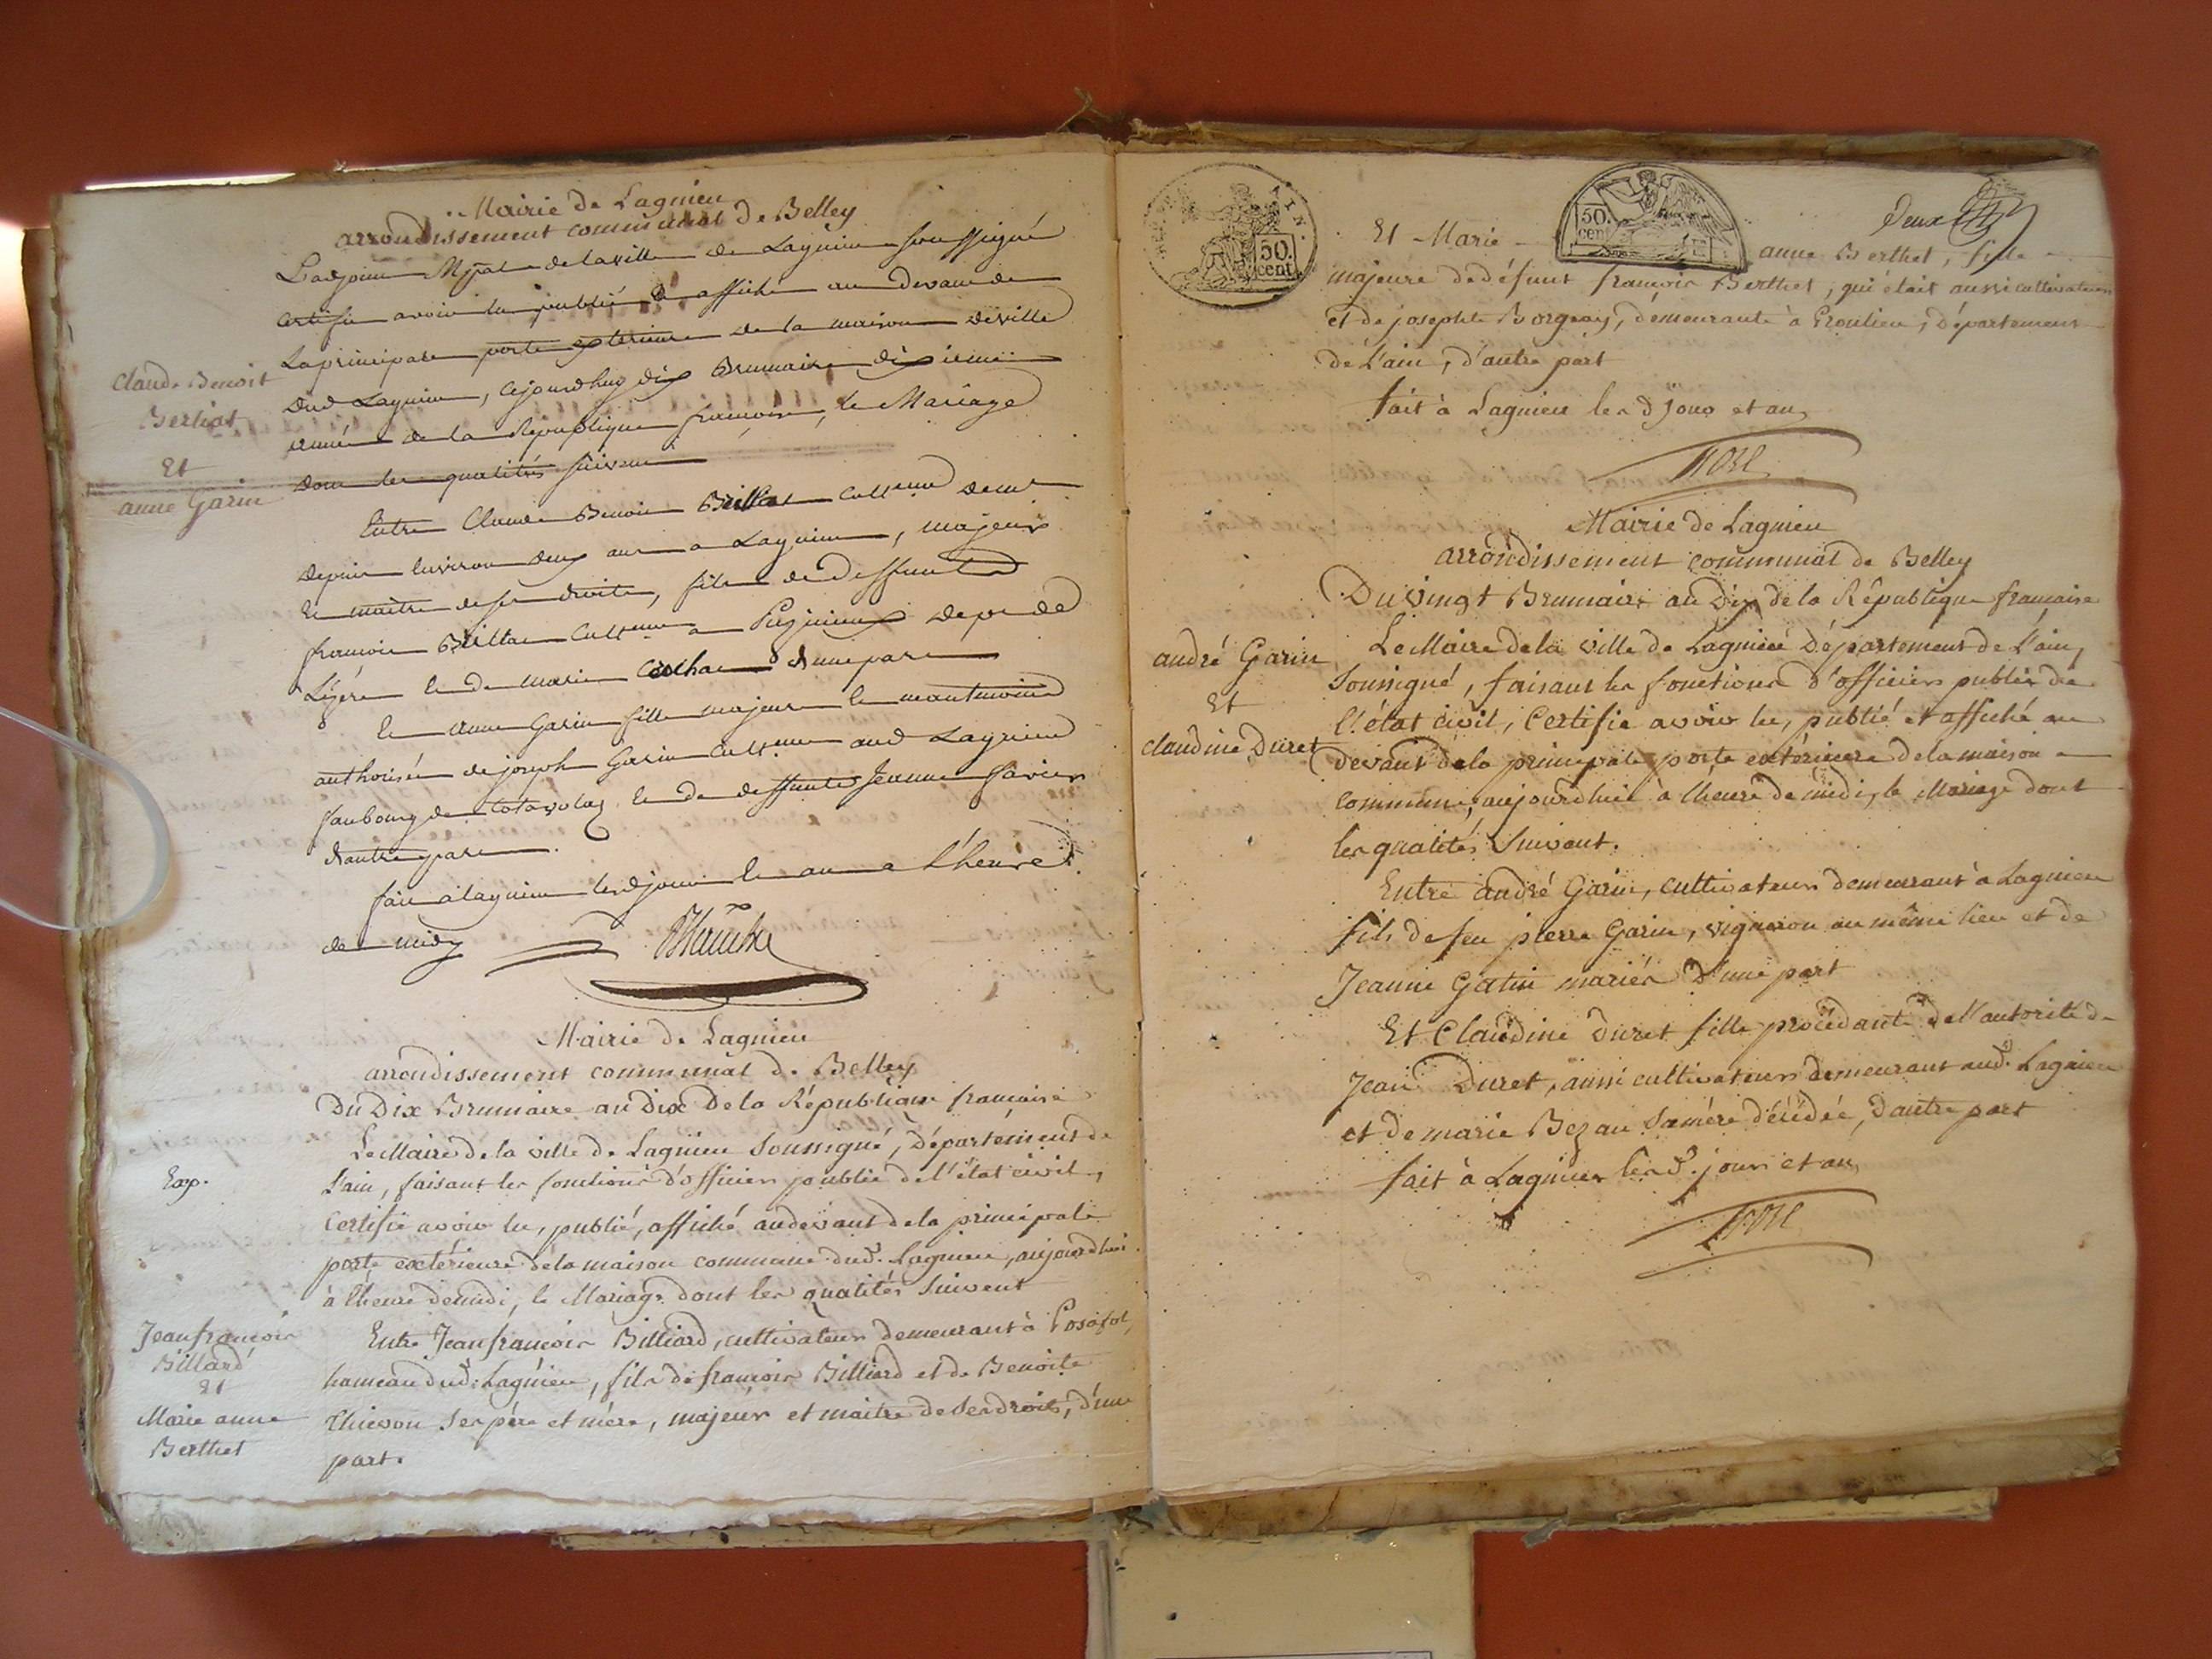 Mairie de Lagnieu
arrondissement communal de Belley
L'adjoint Mpal de la ville de Lagnieu soussigné
certifie avoir lu publié & affiché au devant de
la principale porte exterieure de la maison de ville
dud Lagnieu, cejourdhuy dix Brumaire dixieme
année de la Republique francoise, le Mariage
dont les qualités suivent
Claude Benoit
Berliat
Et
anne Garin
Entre Claude Benoit Brillat demt
depuis environ deux ans a Lagnieu, majeur
et maitre de ses droits, fils de deffunt
francois Brillat a
et de marie d'une part
et anne Garin fille majeure
authorisée de joseph Garin aud Lagnieu
faubourg de et de deffunte Jeanne
d'autre part.
fait a lagnieu lesd jour et an a l'heure
de midy
Mairie de Lagnieu
arrondissement communal de Belley
Du Dix Brumaire an Dix de la République francaise
Le Maire de la ville de Lagnieu soussigné, département de
Exp.
l'ain, faisant les fonctions d'officier public de l'état civil,
certifie avoir lu, publié, affiché au devant de la principale
porte extérieure de la maison commune dud. Lagnieu, aujourdhui
à l'heure de midi, le Mariage dont les qualités suivent
Jean françois
Billard
Et
Marie anne
Berthet
Entre Jean françois Billiard, cultivateur demeurant à Posafol,
hameau dud. Lagnieu, fils de françois Billiard et de Benoite
Thievon ses père et mère, majeur et maitre de ses droits, d'une
part.
50. cent
50. cent
Deux
Et Marie anne Berthet, fille
majeure de défunt françois Berthet, qui était aussi cultivateur
et de josephte Borgeay, demeurante à Proulieu, Département
de l'ain, d'autre part
fait à Lagnieu les d jour et an
Mairie de Lagnieu
arrondissement communal de Belley
Du vingt Brumaire an Dix de la République francaise
andré Garin
Et
claudine Duret
Le Maire de la ville de Lagnieu Département de l'ain,
soussigné, faisant les fonctions d'officier public de
l'état civil, certifie avoir lu, publié et affiché au
devant de la principale porte extérieure de la maison
commune, aujourdhui à l'heure de midi, le Mariage dont
les qualités suivent.
Entre andré Garin, cultivateur demeurant à Lagnieu
fils de feu pierre Garin, vigneron au même lieu et de
Jeanne Gatin mariés d'une part
Et Claudine Duret fille procédante de l'autorité de
Jean Duret, aussi cultivateur demeurant aud. Lagnieu
et de marie Bezan sa mère décédée, d'autre part
fait à Lagnieu les d. jour et an